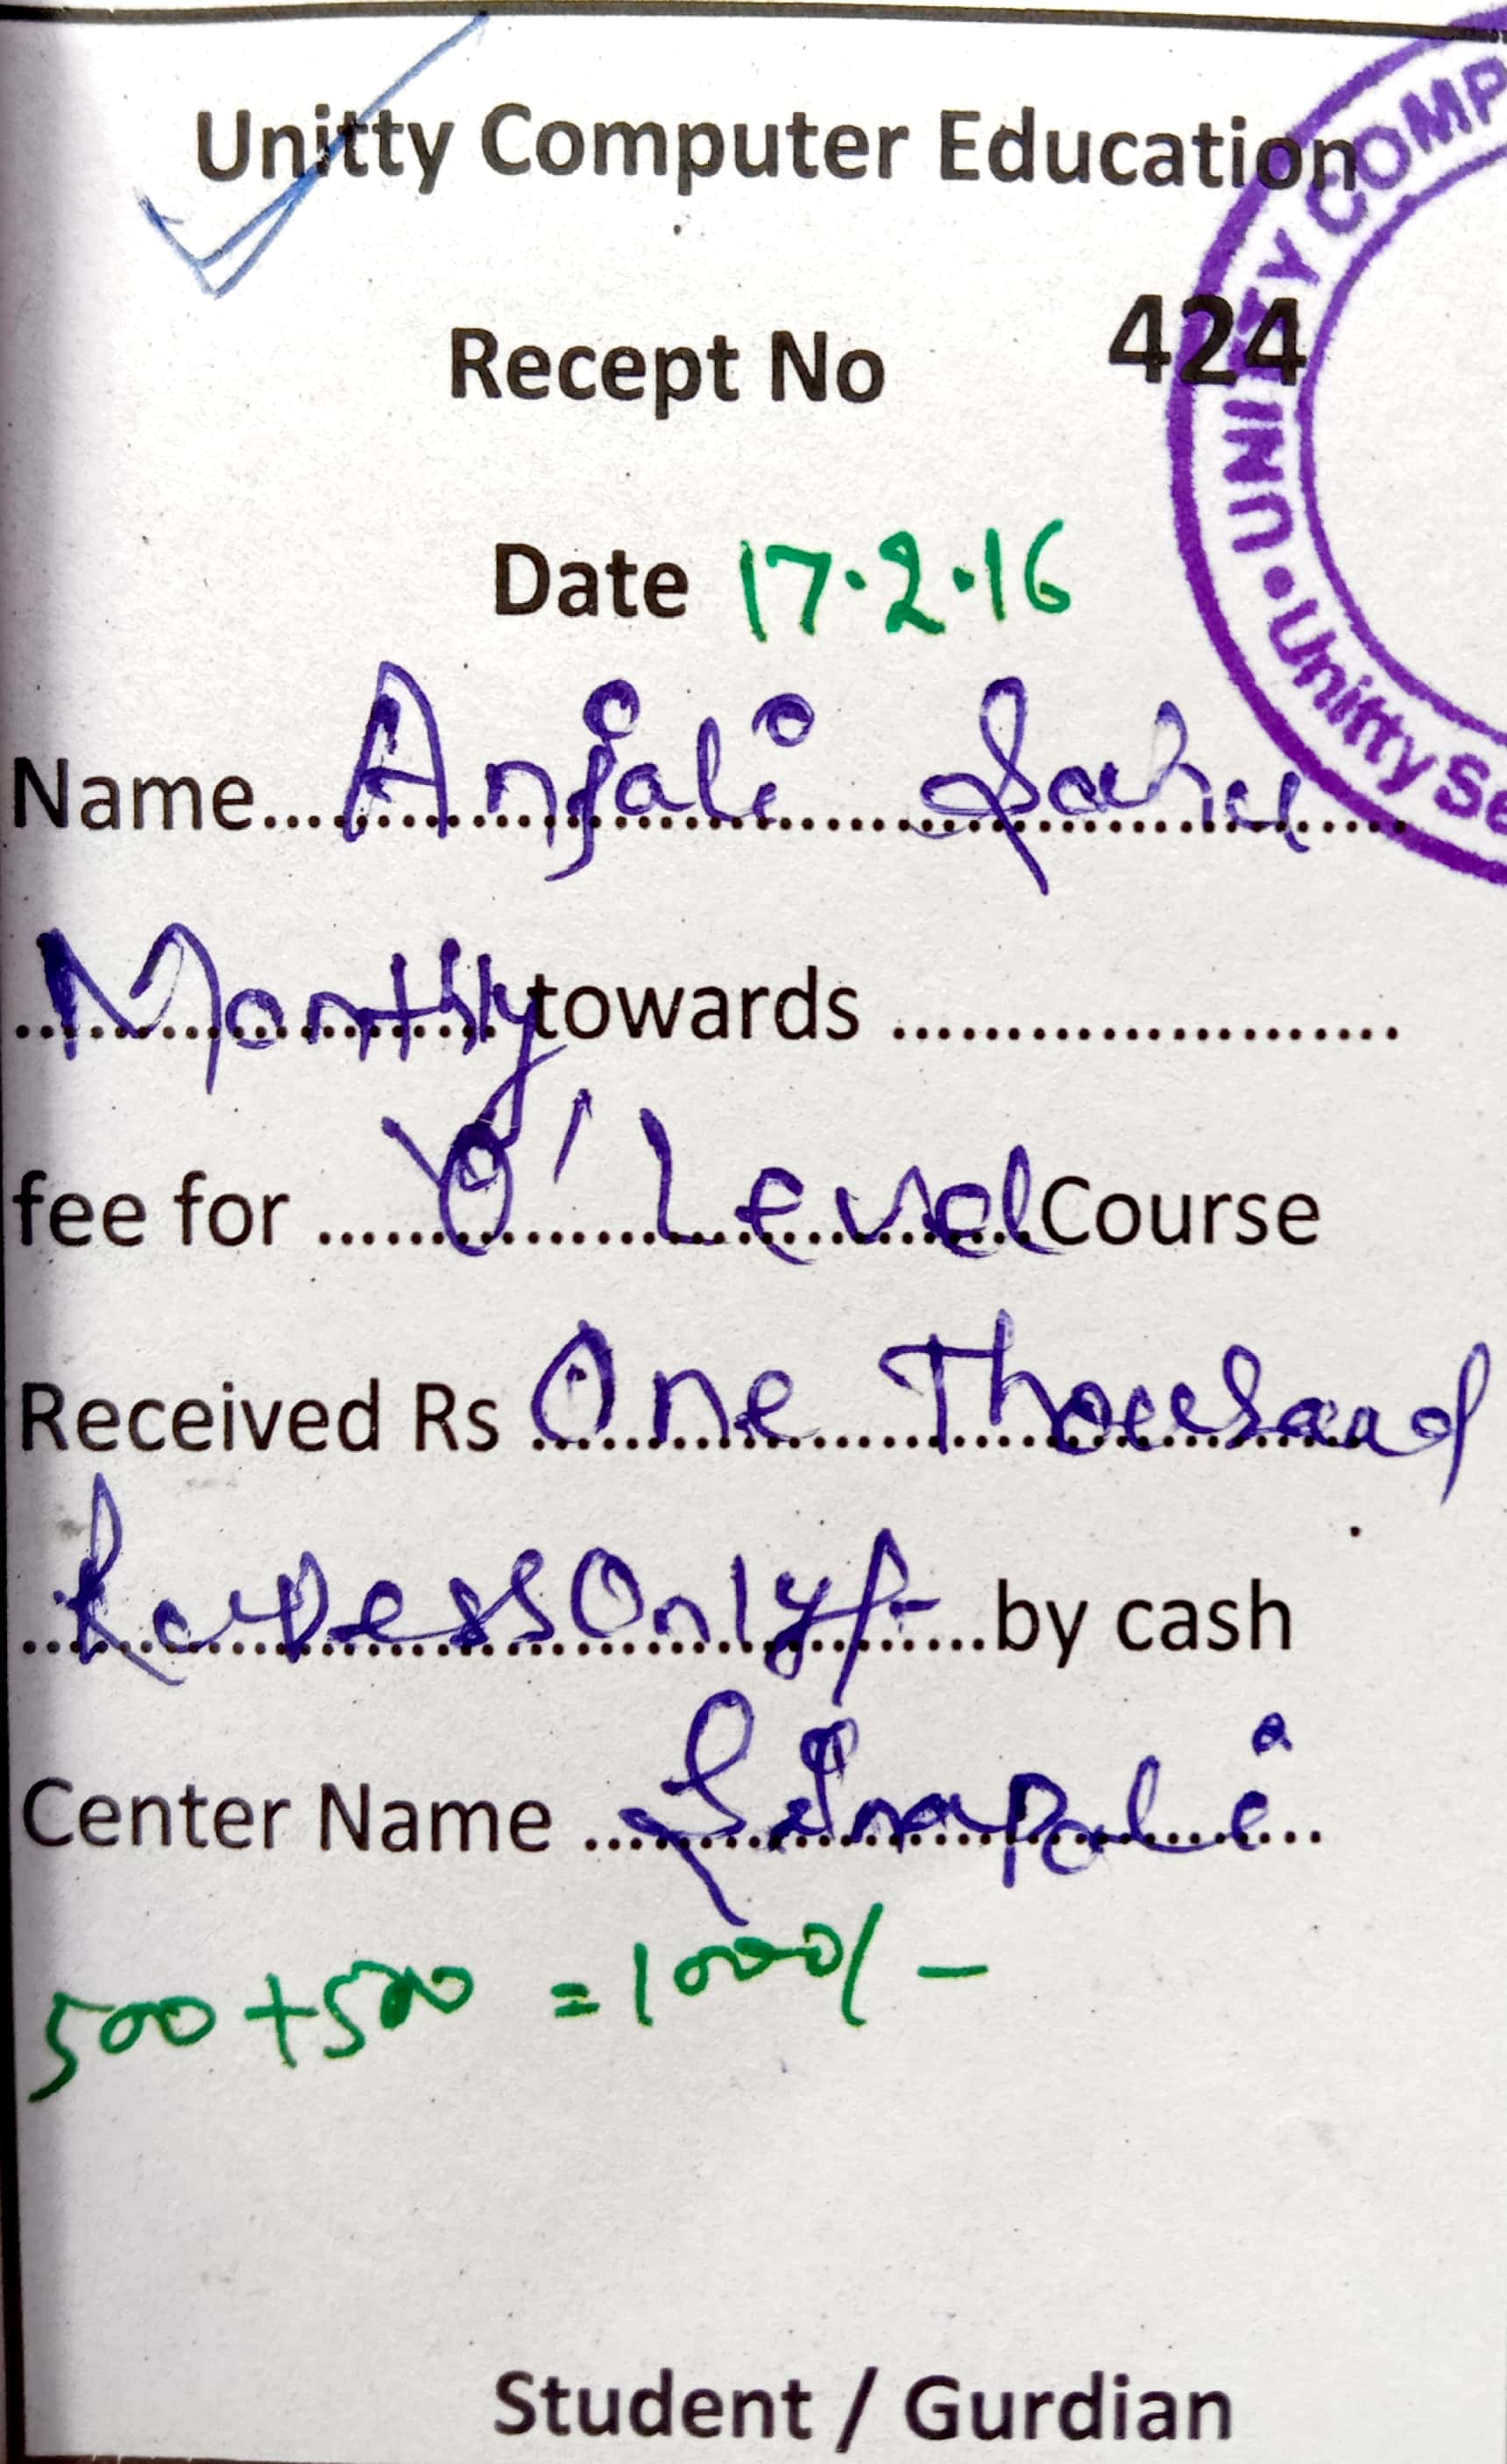 Unitty Computer Education
Recept No 424
Date 17.2.16
Name Anjali Sahu
Monthly towards
fee for 'O' Level Course
Received Rs One Thousand
Rupess Only/- by cash
Center Name Sinapali
500 + 500 = 1000/-
Student / Gurdian
UNITY COMP
Unitty Se